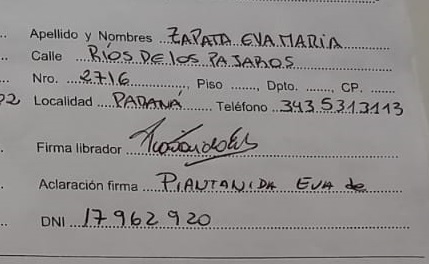 Apellido y Nombres ZAPATA EVA MARIA
Calle RÍOS DE los PAJAROS
Nro. 2716, Piso ......., Dpto. ......., CP. .......
Localidad PARANÁ Teléfono 3435313113
Firma librador
Aclaración firma PIANTANIDA EVA de
DNI 17962920